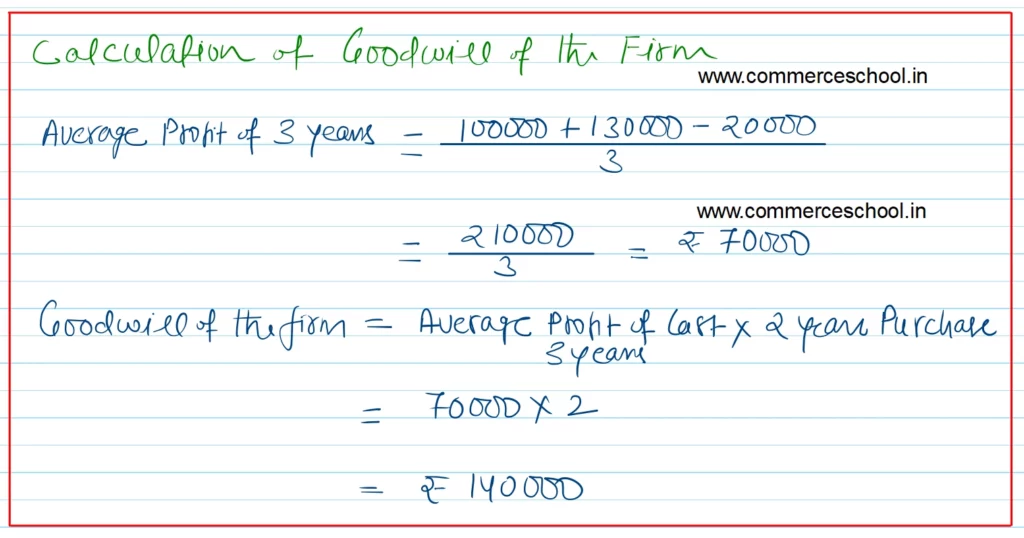 Calculation of Goodwill of the Firm
www.commerceschool.in
Average Profit of 3 years = 100000 + 130000 - 20000
3
www.commerceschool.in
= 210000 = ₹ 70000
3
Goodwill of the firm = Average Profit of Last × 2 years Purchase
3 years
= 70000 × 2
= ₹ 140000